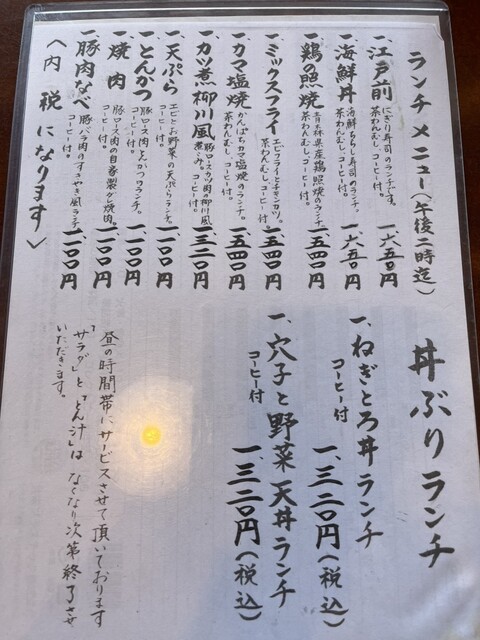 ランチメニュー(午後二時迄)
一、江戸前 にぎり寿司のランチです。 茶わんむし、コーヒー付。 一、六五〇円
一、海鮮丼 海鮮ちらし寿司のランチ。 茶わんむし、コーヒー付。 一、六五〇円
一、鶏の照焼 青森県産鶏照焼のランチ 茶わんむし、コーヒー付。 一、五四〇円
一、ミックスフライ エビフライとチキンカツ。 茶わんむし、コーヒー付。 一、五四〇円
一、カマ塩焼 かんぱちカマ塩焼のランチ。 茶わんむし、コーヒー付。 一、五四〇円
一、カツ煮柳川風 豚ロースカツ肉の柳川風 煮こみ。コーヒー付。 一、三二〇円
一、天ぷら エビとお野菜の天ぷらランチ。 コーヒー付。 一、一〇〇円
一、とんかつ 豚ロース肉とんかつのランチ。 コーヒー付。 一、一〇〇円
一、焼肉 豚ロース肉の自家製タレ焼肉。 コーヒー付。 一、一〇〇円
一、豚肉なべ 豚バラ肉のすきやき風ランチ コーヒー付。 一、一〇〇円
〈内税になります〉
丼ぶりランチ
一、ねぎとろ丼ランチ
コーヒー付 一、三二〇円(税込)
一、穴子と野菜天丼ランチ
コーヒー付 一、三二〇円(税込)
昼の時間帯にサービスさせて頂いております
「サラダ」と「とん汁」は なくなり次第終了させ
いただきます。